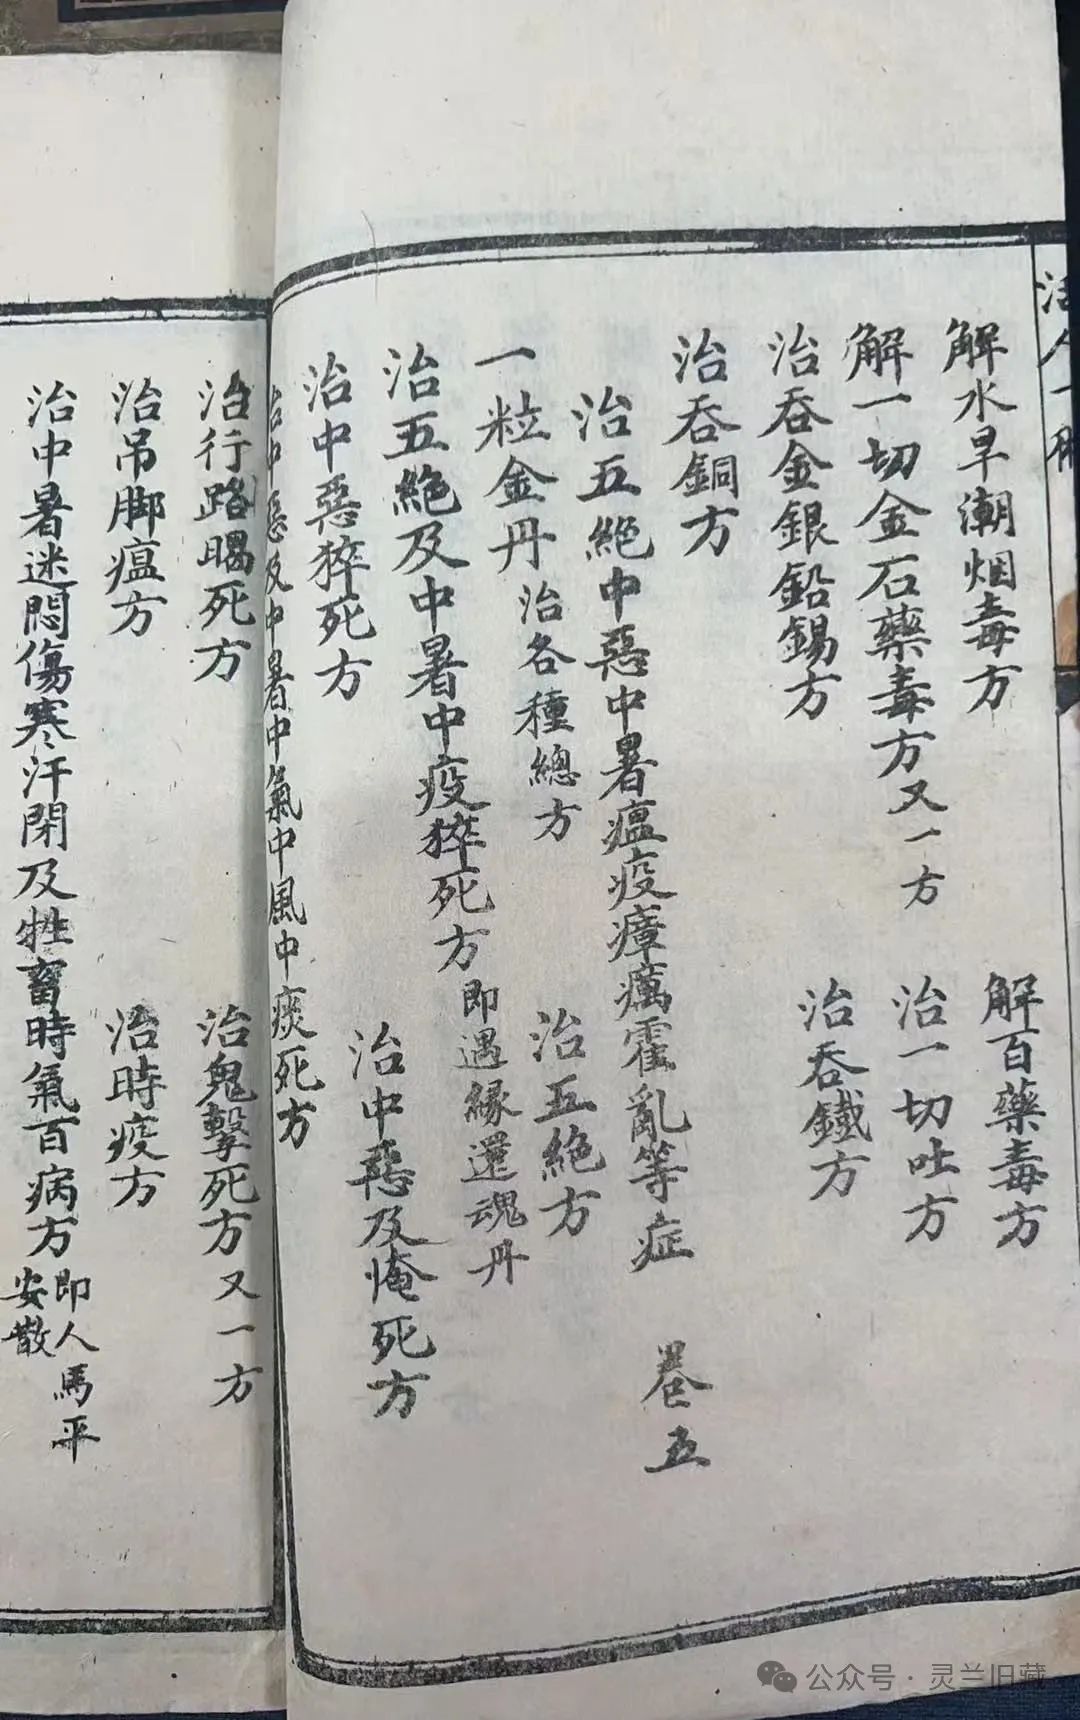 解水旱潮烟毒方 解百藥毒方
解一切金石藥毒方 又一方 治一切吐方
治吞金銀鉛錫方 治吞鐵方
治吞銅方
治五絕中惡中暑瘟疫瘴癘霍亂等症 卷五
一粒金丹 治各種總方 治五絕方
治五絕及中暑中疫猝死方 即遇緣還魂丹
治中惡猝死方 治中惡及俺死方
治中惡及中暑中氣中風中痰死方
治行路暍死方 治鬼擊死方 又一方
治吊脚瘟方 治時疫方
治中暑迷悶傷寒汗閉及牲畜時氣百病方 即人馬平安散
公众号·灵兰旧藏